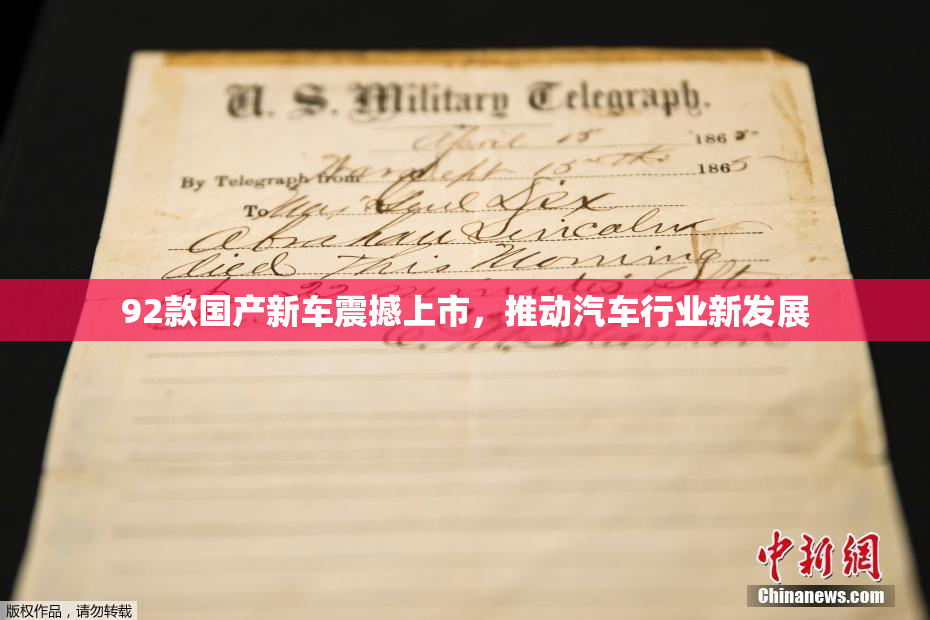 U. S. Military Telegraph.
April 15 1865
By Telegraph from War Dept 15th 1865
To Maj Genl Dix
Abraham Lincoln
died This Morning
at 22 minutes after
92款国产新车震撼上市，推动汽车行业新发展
中新网
Chinanews.com
版权作品，请勿转载